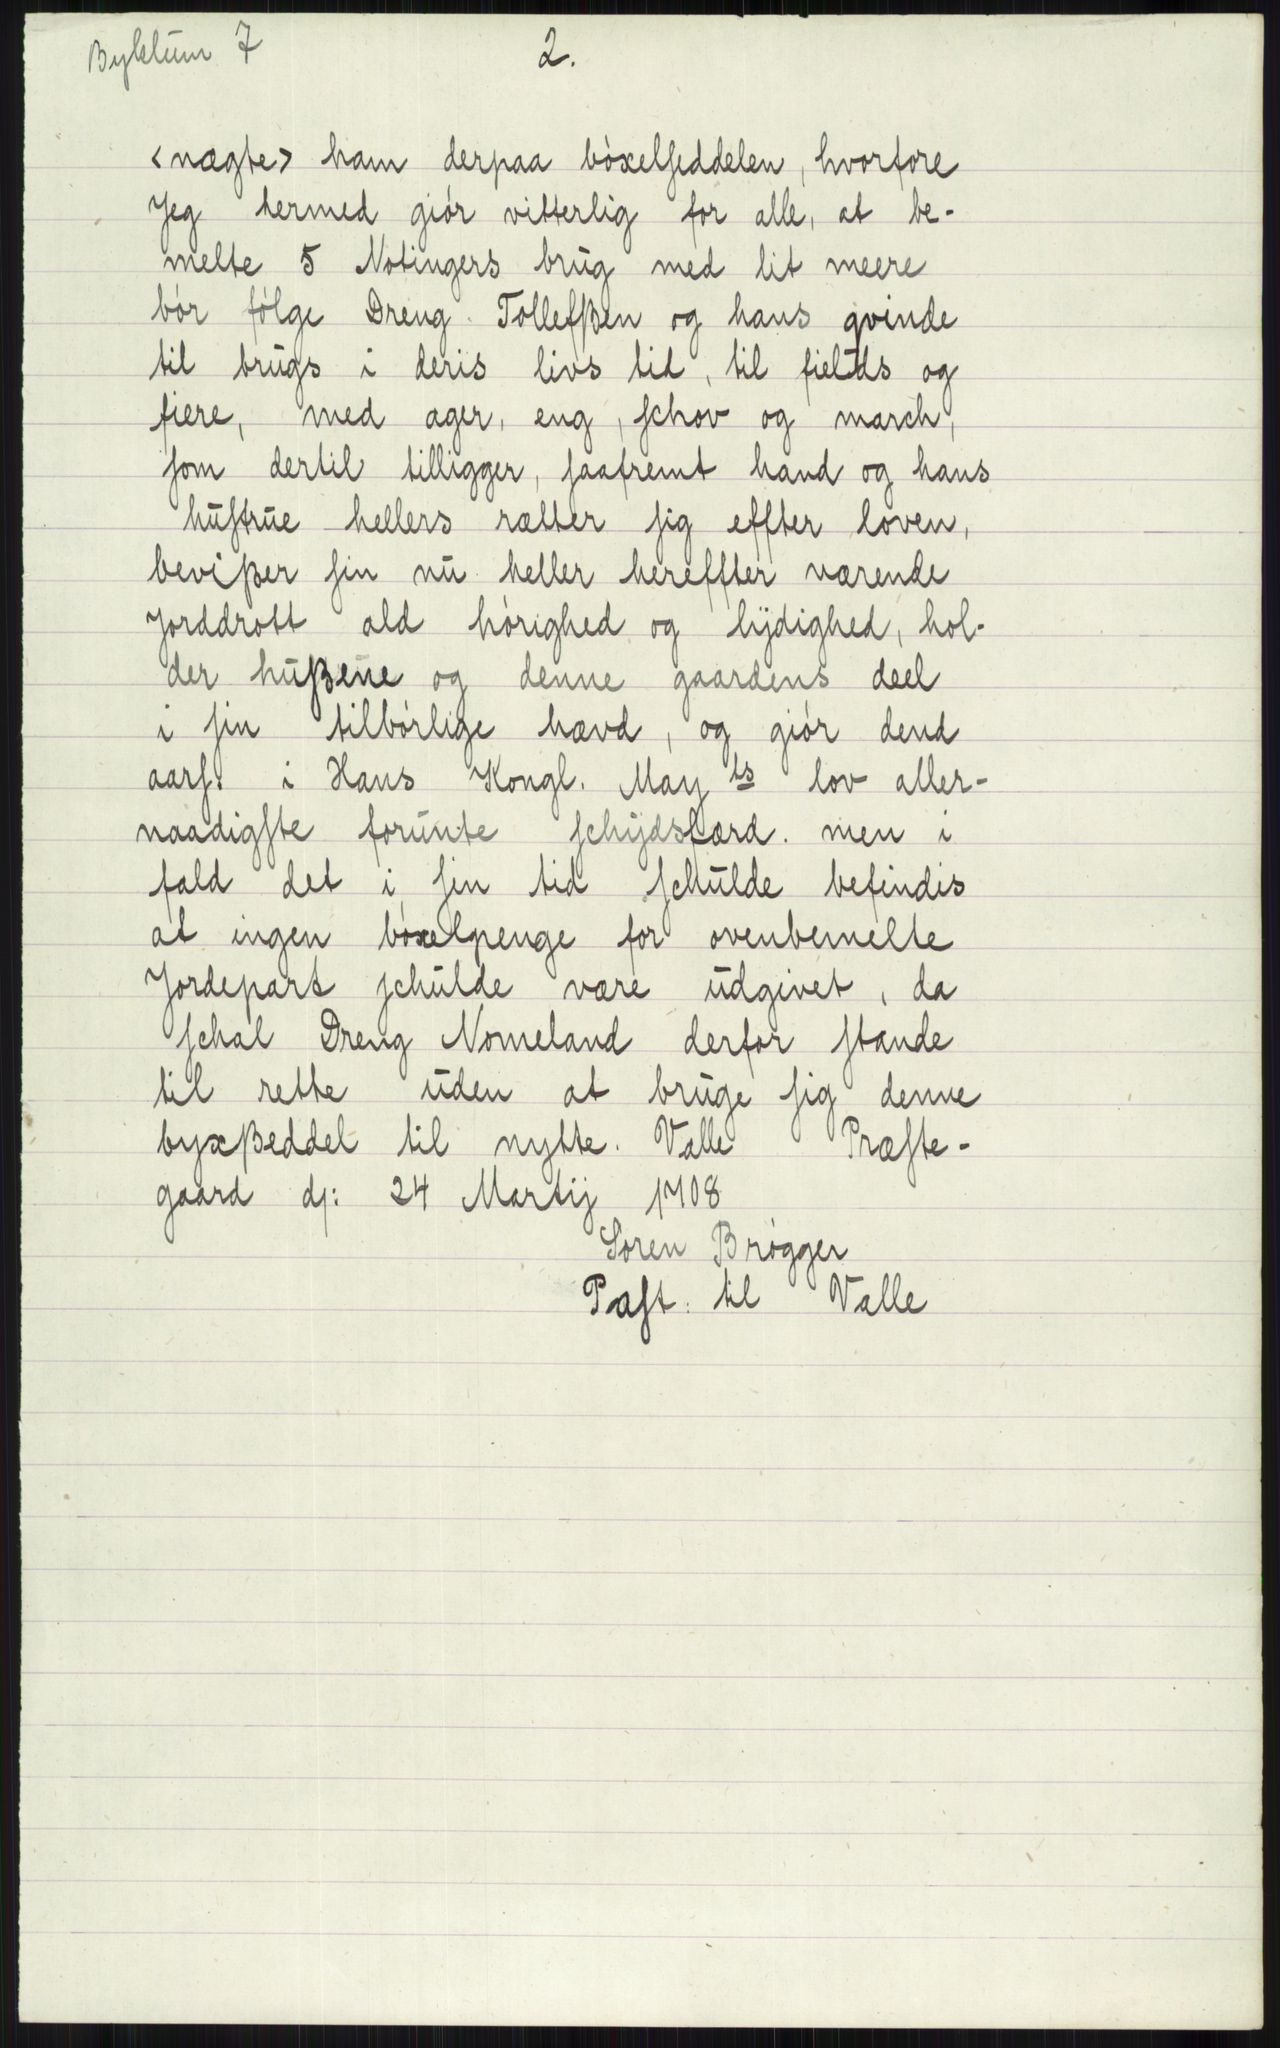 Byklum 7
2.
<nægte> ham derpaa bòxelseddelen, hvorfore
Jeg hermed giòr vitterlig for alle, at be-
melte 5 Nòtingers brug med lit meere
bòr fòlge Dreng Tollefßen og hans qvinde
til brugs i deris livs tid, til fields og
fiere, med ager, eng, schov og march,
som dertil tilligger, saafremt hand og hans
hustrue hellers rætter sig effter loven,
bevißer sin nu heller hereffter værende
Jorddrott ald hòrighed og lÿdighed, hol-
der hußene og denne gaardens deel
i sin tilbòrlige hævd, og giòr dend
aarf: i Hans Kongl. May ts lov aller-
naadigste forunte schÿdsfærd. men i
fald det i sin tid schulde befindis
at ingen bòxelpenge for ovenbemelte
Jordepart schulde være udgivet, da
schal Dreng Nomeland derfor stande
til rette uden at bruge sig denne
byxßeddel til nytte. Valle Præste-
gaard dj: 24 Martij 1708
Sòren Brògger
Past: til Valle